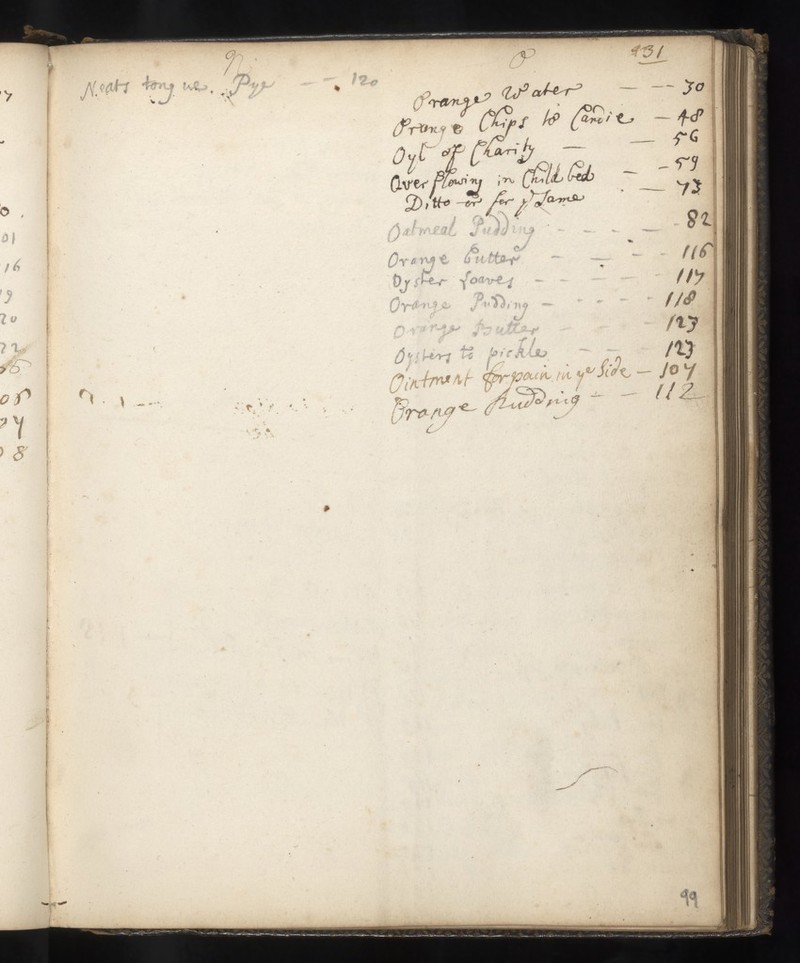 N
Neats tongue Pye — — 120
O
431
Orange Water — — — 30
Orange Chips to Candie — 48
Oyl of Charity — — 56
Over flowing in Child bed — — 59
Ditto or for ye Same — 73
Oatmeal Pudding - - - - 82
Orange Butter — — - - 116
Oyster Loaves — — — — 117
Orange Pudding — - - - 118
Orange Butter — — - 123
Oysters to pickle — — 123
Ointment for pain in ye Side — 107
Orange Pudding — — 112
99